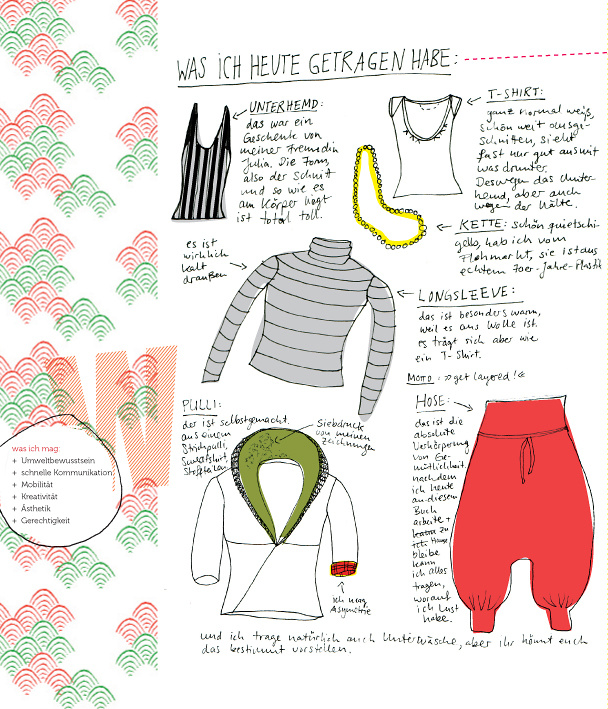 WAS iCH HEUTE GETRAGEN HABE:
UNTERHEMD:
das war ein
Geschenk von
meiner Freundin
Julia. Die Form,
also der Schnitt
und so wie es
am Körper liegt
ist total toll.
T-SHIRT:
ganz normal weiß,
schön weit ausge-
schnitten, sieht
fast nur gut aus mit
was drunter.
Deswegen das Unter-
hemd, aber auch
wegen der Kälte.
KETTE: schön quietschi-
gelb, hab ich vom
Flohmarkt, sie ist aus
echtem 70er-Jahre-Plastik
es ist
wirklich
kalt
draußen
LONGSLEEVE:
das ist besonders warm,
weil es aus Wolle ist.
es trägt sich aber wie
ein T-Shirt.
MOTTO: »get layered!«
PULLI:
der ist selbstgemacht.
aus einem
Strickpulli,
Sweatshirt,
Stoffteilen
Siebdruck
von meinen
Zeichnungen
ich mag
Asymetrie
HOSE:
das ist die
absolute
Verkörperung
von Ge-
mütlichkeit.
nachdem
ich heute
an diesem
Buch
arbeite +
zu
Hause
bleibe
kann
ich alles
tragen,
worauf
ich Lust
habe.
und ich trage natürlich auch Unterwäsche, aber ihr könnt euch
das bestimmt vorstellen.
was ich mag:
+ Umweltbewusstsein
+ schnelle Kommunikation
+ Mobilität
+ Kreativität
+ Ästhetik
+ Gerechtigkeit